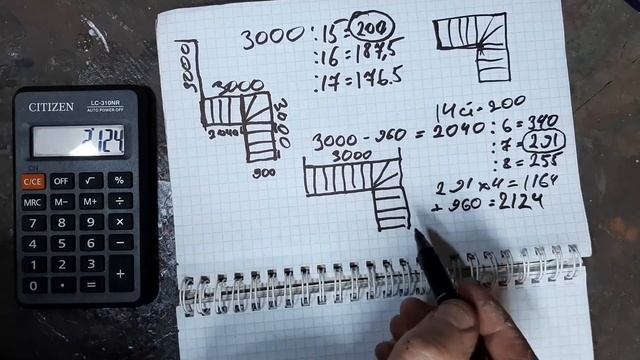 3000 :15=200
:16=187,5
:17=176.5
3000
3000
3000
2040
900
14 ci=200
3000-960=2040 :6=340
:7=291
:8=255
3000
291x4=1164
+960=2124
CITIZEN
LC-310NR
AUTO POWER OFF
2124
ON
C/CE OFF √ % ÷
MRC M- M+ ×
7 8 9 -
4 5 6 +
1 2 3
0 . =